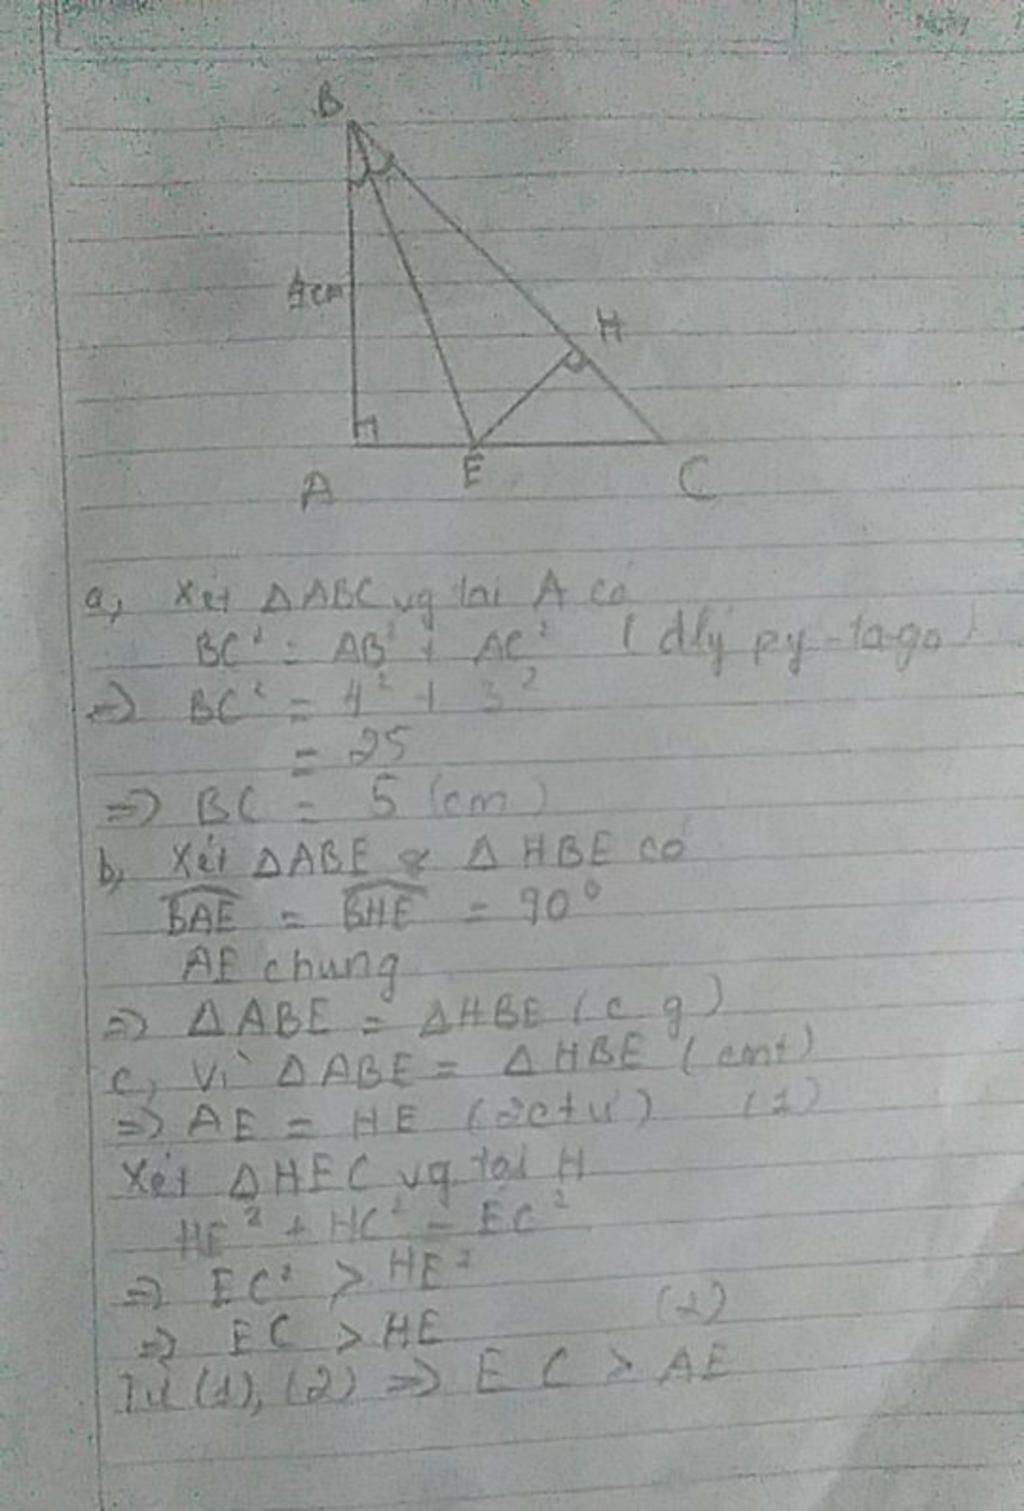 Ngày
B
4cm
H
A
E
C
a, Xét ΔABC vg tại A có
BC² = AB² + AC² (đlý py-ta-go)
=> BC² = 4² + 3²
= 25
=> BC = 5 (cm)
b, Xét ΔABE & ΔHBE có
BAE = BHE = 90°
AE chung
=> ΔABE = ΔHBE (c g)
c, Vì ΔABE = ΔHBE (cmt)
=> AE = HE (2ctư) (1)
Xét ΔHEC vg tại H
HE² + HC² = EC²
=> EC² > HE²
=> EC > HE (2)
Từ (1), (2) => EC > AE